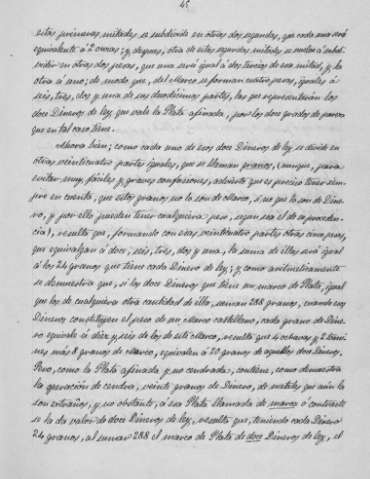 45.
estas primeras mitades se subdivide en otras dos segundas, que cada una será
equivalente á 2 onzas; y despues, otra de estas segundas mitades se vuelve á subdi-
vidir en otras dos pesas, que una será igual á dos tercios de esa mitad, y la
otra á uno; de modo que, del Marco se forman cuatro pesas, iguales á
seis, tres, dos y una de sus duodécimas partes, las que representarán los
doce Dineros de ley, que vale la Plata afinada, por los doce grados de pureza
que en tal caso tiene.
Ahora bien; como cada uno de esos doce Dineros de ley se divide en
otras veinticuatro partes iguales, que se llaman granos, (aunque, para
evitar muy fáciles y graves confusiones, advierto que es preciso tener siem-
pre en cuenta, que estos granos no lo son de Marco, si no que lo son de Dine-
ro, y por ello pueden tener cualquiera peso, segun sea el de su proceden-
cia), resulta que, formando con esas veinticuatro partes otras cinco pesas,
que equivalgan á doce, seis, tres, dos y una, la suma de ellas será igual
á los 24 granos que tiene cada Dinero de ley; y como aritméticamente
se demuestra que, si los doce Dineros que tiene un marco de Plata, igual
que los de cualquiera otra cantidad de ella, suman 288 granos, cuando esos
Dineros constituyen el peso de un Marco castellano, cada grano de Dine-
ro equivale á diez y seis de los de este Marco, resulta que 4 octavas y 2 tomi-
nes más 8 granos de Marco, equivalen á 20 granos de aquellos doce Dineros.
Pero, como la Plata afinada y no cendrada, contiene, como demuestra
la operación de cendra, veinte granos de Dinero, de metales que aún la
son extraños, y no obstante, á esa Plata llamada de marca ó contraste
se la da valor de doce Dineros de ley, resulta que, teniendo cada Dinero
24 granos, al sumar 288 el marco de Plata de doce Dineros de ley, el